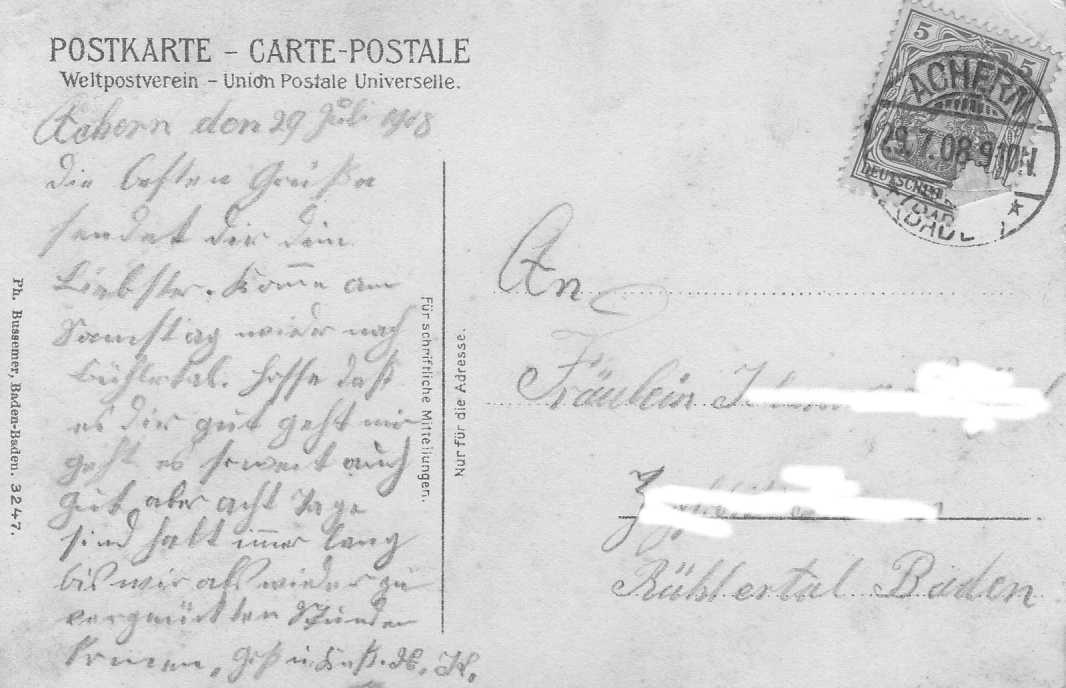 POSTKARTE – CARTE-POSTALE
Weltpostverein – Union Postale Universelle.
Achern den 29 Juli 1908
die besten Grüße
sendet dir dein
Liebster. Kom̄e am
Samstag wieder nach
Bühlertal. Hoffe daß
es dir gut geht mir
geht es soweit auch
gut, aber acht Tage
sind halt im̄er lang
bis wir als wieder zu
vergnügten Stunden
kom̄en. Gruß u. Kuß.
Ph. Bussemer, Baden-Baden. 3247.
Für schriftliche Mitteilungen.
Nur für die Adresse.
5 5
DEUTSCHES
ACHERN
29.7.08.9-10N.
An
Fräulein
Bühlertal Baden